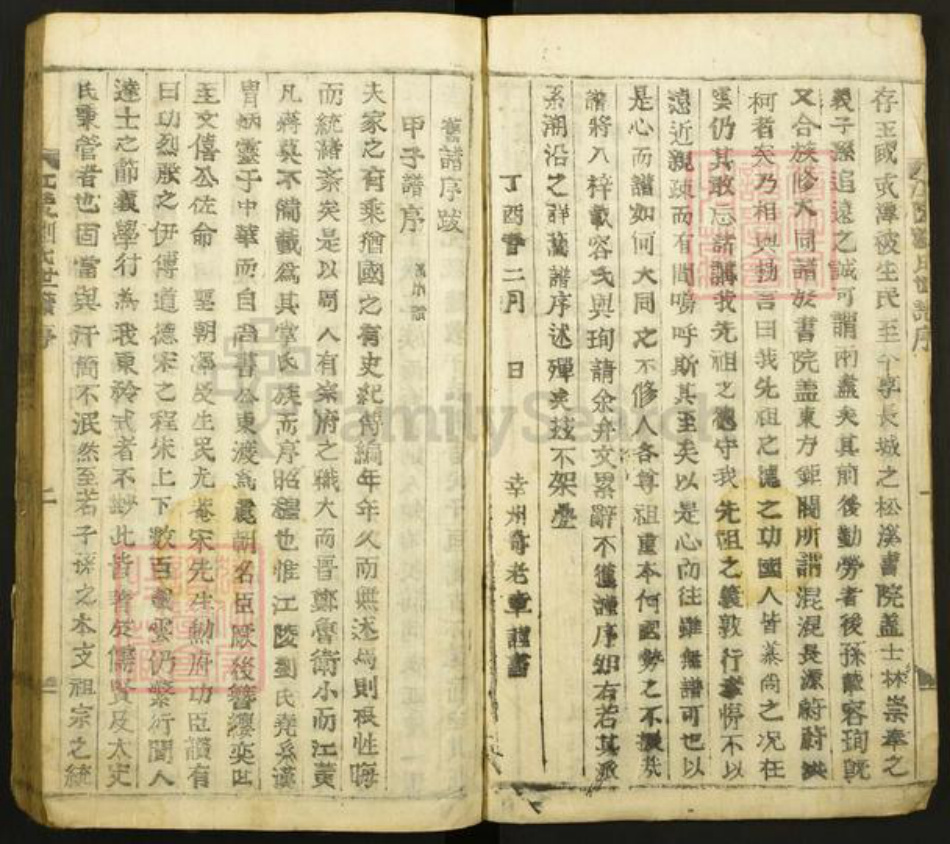 存王國或澤被生民至今享長城之松溪書院蓋士林崇奉之
義子孫追遠之誠可謂兩盡矣其前後勤勞者後孫載容珣旣
又合族修大同譜於書院蓋東方鉅閥所謂混混長源蔚蔚
柯者矣乃相與揚言曰我先祖之德之功國人皆慕尚之况在
雲仍其敢忘諸講我先祖之德守我先祖之義敦行孝悌不以
遠近親疎而有間嗚呼斯其至矣以是心而往雖無譜可也以
是心而譜如何大同之不修人各尊祖重本何國勢之不振哉
譜將入梓載容甫與珣請余弁文累辭不獲謹序如右若其派
系溯沿之詳舊譜序述殫矣玆不架疊
丁酉春二月 日 幸州奇老章謹書
舊譜序跋
甲子譜序
夫家之有乘猶國之有史紀傳編年年久而無述焉則根性晦
而統緖紊矣是以周人有宗府之職大而晋鄭魯衛小而江黃
凡蔣莫不備載爲其掌氏族而序昭穆也惟江陵劉氏堯系漢
胄炳靈于中華而自尚書公東渡爲麗朝名臣厥後簪纓奕世
至文僖公佐命 聖朝澤及生民尤菴宋先生勳府功臣讚有
曰功烈殷之伊傅道德宋之程朱上下數百載雲仍繁衍聞人
達士之節義學行爲我東矜式者不尠此皆著於儒賢及太史
氏秉管者也固當與汗簡不泯然至若子孫之本支祖宗之統
江陵劉氏世譜序
二
江陵劉氏世譜序
FamilySearch